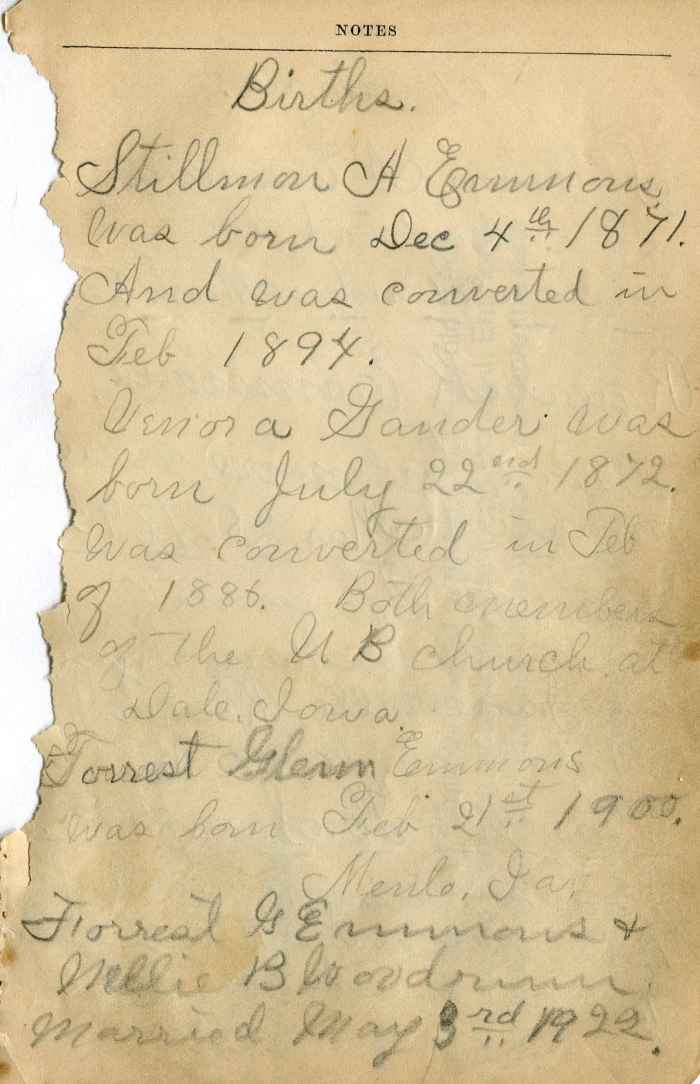 NOTES
Births.
Stillmon A Emmons,
was born Dec 4th 1871.
And was converted in
Feb 1894.
Venora Gander was
born July 22nd 1872.
was converted in Feb
of 1886. Both members
of the U B church at
Dale, Iowa.
Forrest Glenn Emmons
was born Feb 21st 1900.
Menlo, Ia.
Forrest G Emmons &
Nellie B Woodrum
Married May 3rd 1922.